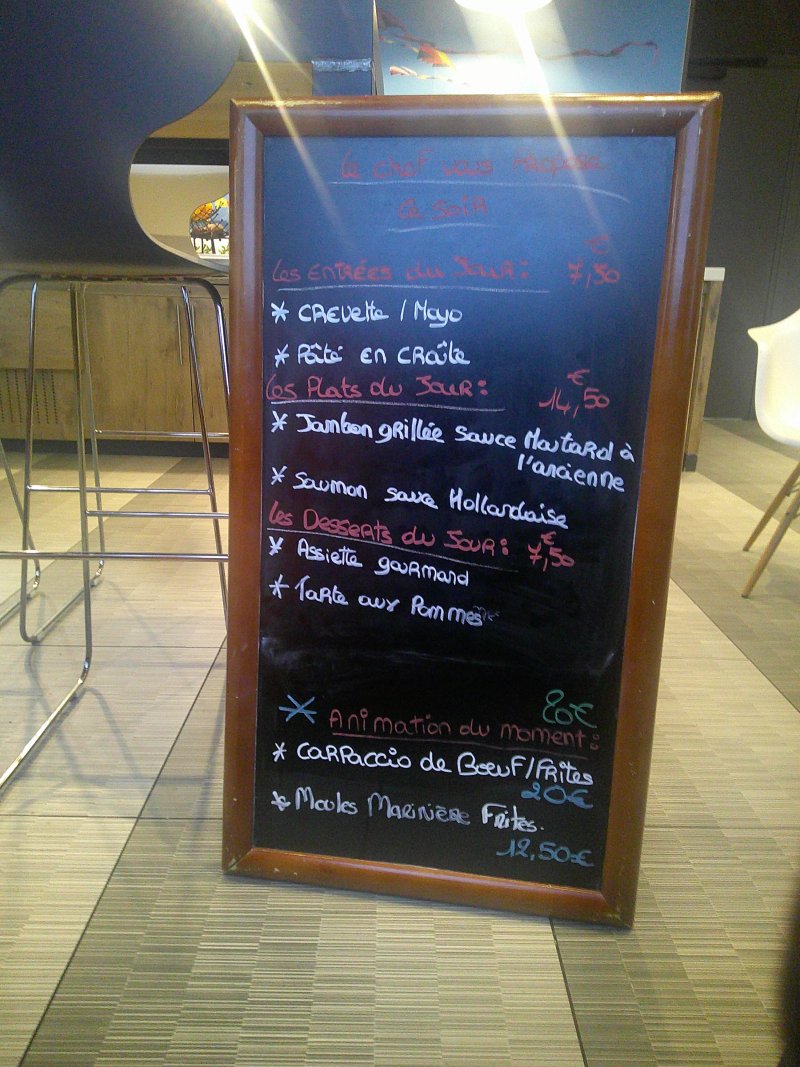 Le chef vous Propose
Ce soir
€
Les Entrées du Jour : 7,50
* Crevette / Mayo
* Pâté en croûte
€
Les Plats du Jour : 14,50
* Jambon grillée sauce Moutard à
l'ancienne
* Saumon sauce Hollandaise
€
Les Desserts du Jour : 7,50
* Assiette gourmand
* Tarte aux Pommes
20€
* Animation du moment :
* Carpaccio de Boeuf/Frites
20€
* Moules Marinière Frites.
12,50€